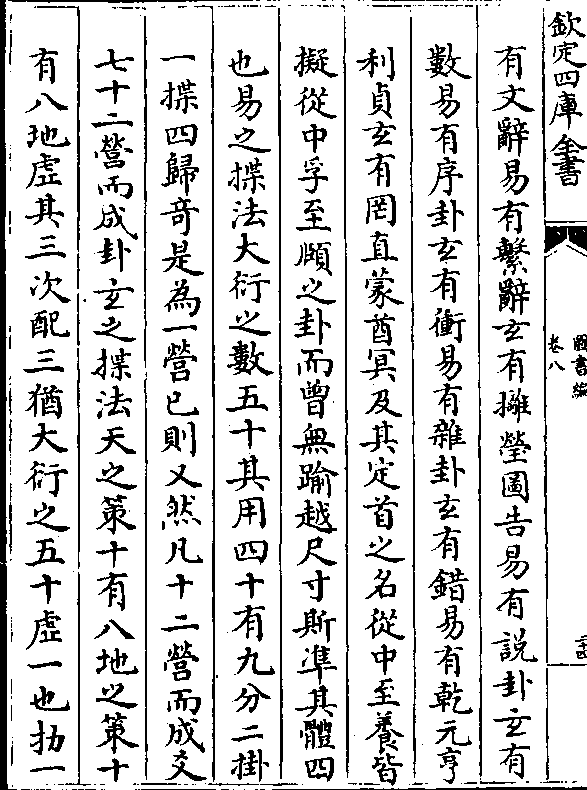 欽定四庫全書
圖書編
卷八
二十四
有文辭易有繫辭玄有攡瑩圖告易有說卦玄有
數易有序卦玄有衝易有雜卦玄有錯易有乾元亨
利貞玄有罔直蒙酋冥及其定首之名從中至養皆
擬從中孚至頤之卦而曾無踰越尺寸斯準其體四
也易之揲法大衍之數五十其用四十有九分二掛
一揲四歸奇是為一營已則又然凡十二營而成爻
七十二營而成卦玄之揲法天之策十有八地之策十
有八地虛其三次配三猶大衍之五十虛一也扐一